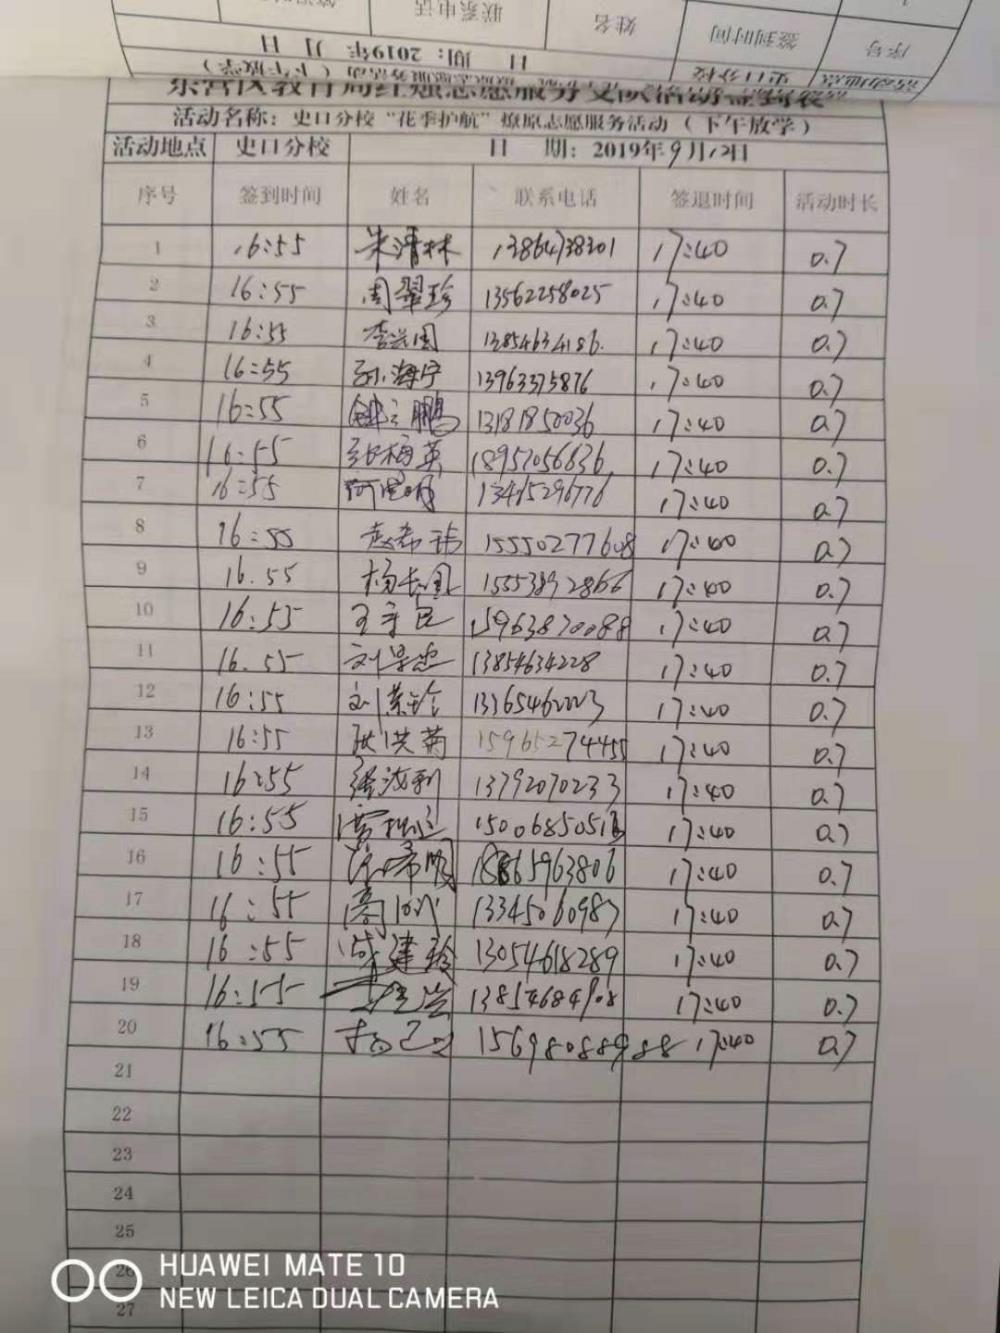 联系电话
姓名
签到时间
序号
日 期：2019年 月 日
史口分校
活动地点
东营区教育局红烛志愿服务支队活动签到表
活动名称：史口分校“花季护航”燎原志愿服务活动（下午放学）
活动地点 史口分校 日 期：2019年9月12日
序号 签到时间 姓名 联系电话 签退时间 活动时长
1 16:55 朱清林 13864738301 17:40 0.7
2 16:55 周翠珍 13562258025 17:40 0.7
3 16:55 李兴国 13854634186 17:40 0.7
4 16:55 孙海宁 13963375876 17:40 0.7
5 16:55 鹏 13181850036 17:40 0.7
6 16:55 张梅英 18957056636 17:40 0.7
7 16:55 17:40 0.7
8 16:55 赵希玮 15550277608 17:40 0.7
9 16.55 杨长国 17:40 0.7
10 16:55 王守臣 15963870088 17:40 0.7
11 16.55 刘景忠 13854634228 17:40 0.7
12 16:55 刘 17:40 0.7
13 16:55 洪菊 15965274455 17:40 0.7
14 16:55 13792070233 17:40 0.7
15 16:55 17:40 0.7
16 16:55 18865963806 17:40 0.7
17 16:55 13345060987 17:40 0.7
18 16:55 建 13054618289 17:40 0.7
19 16:55 13854684908 17:40 0.7
20 16:55 杨 15698088988 17:40 0.7
21
22
23
24
25
26
27
HUAWEI MATE 10
NEW LEICA DUAL CAMERA